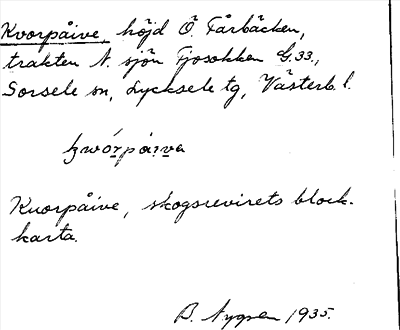 Kvorpåive, höjd Ö. Fårbäcken,
trakten N. sjön Fjosokken G.33.,
Sorsele sn, Lycksele tg, Västerb. l.
Kuorpåive, skogsrevirets block-
karta.
B. Nygren 1935.